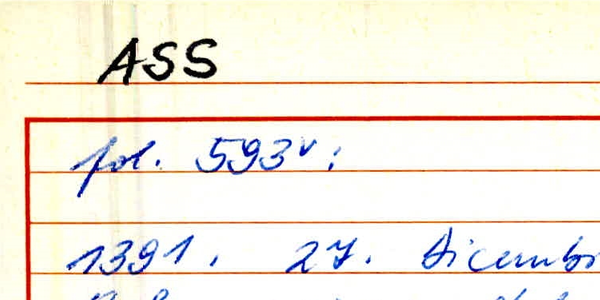 ASS
fol. 593v:
1391. 27. Dicembr